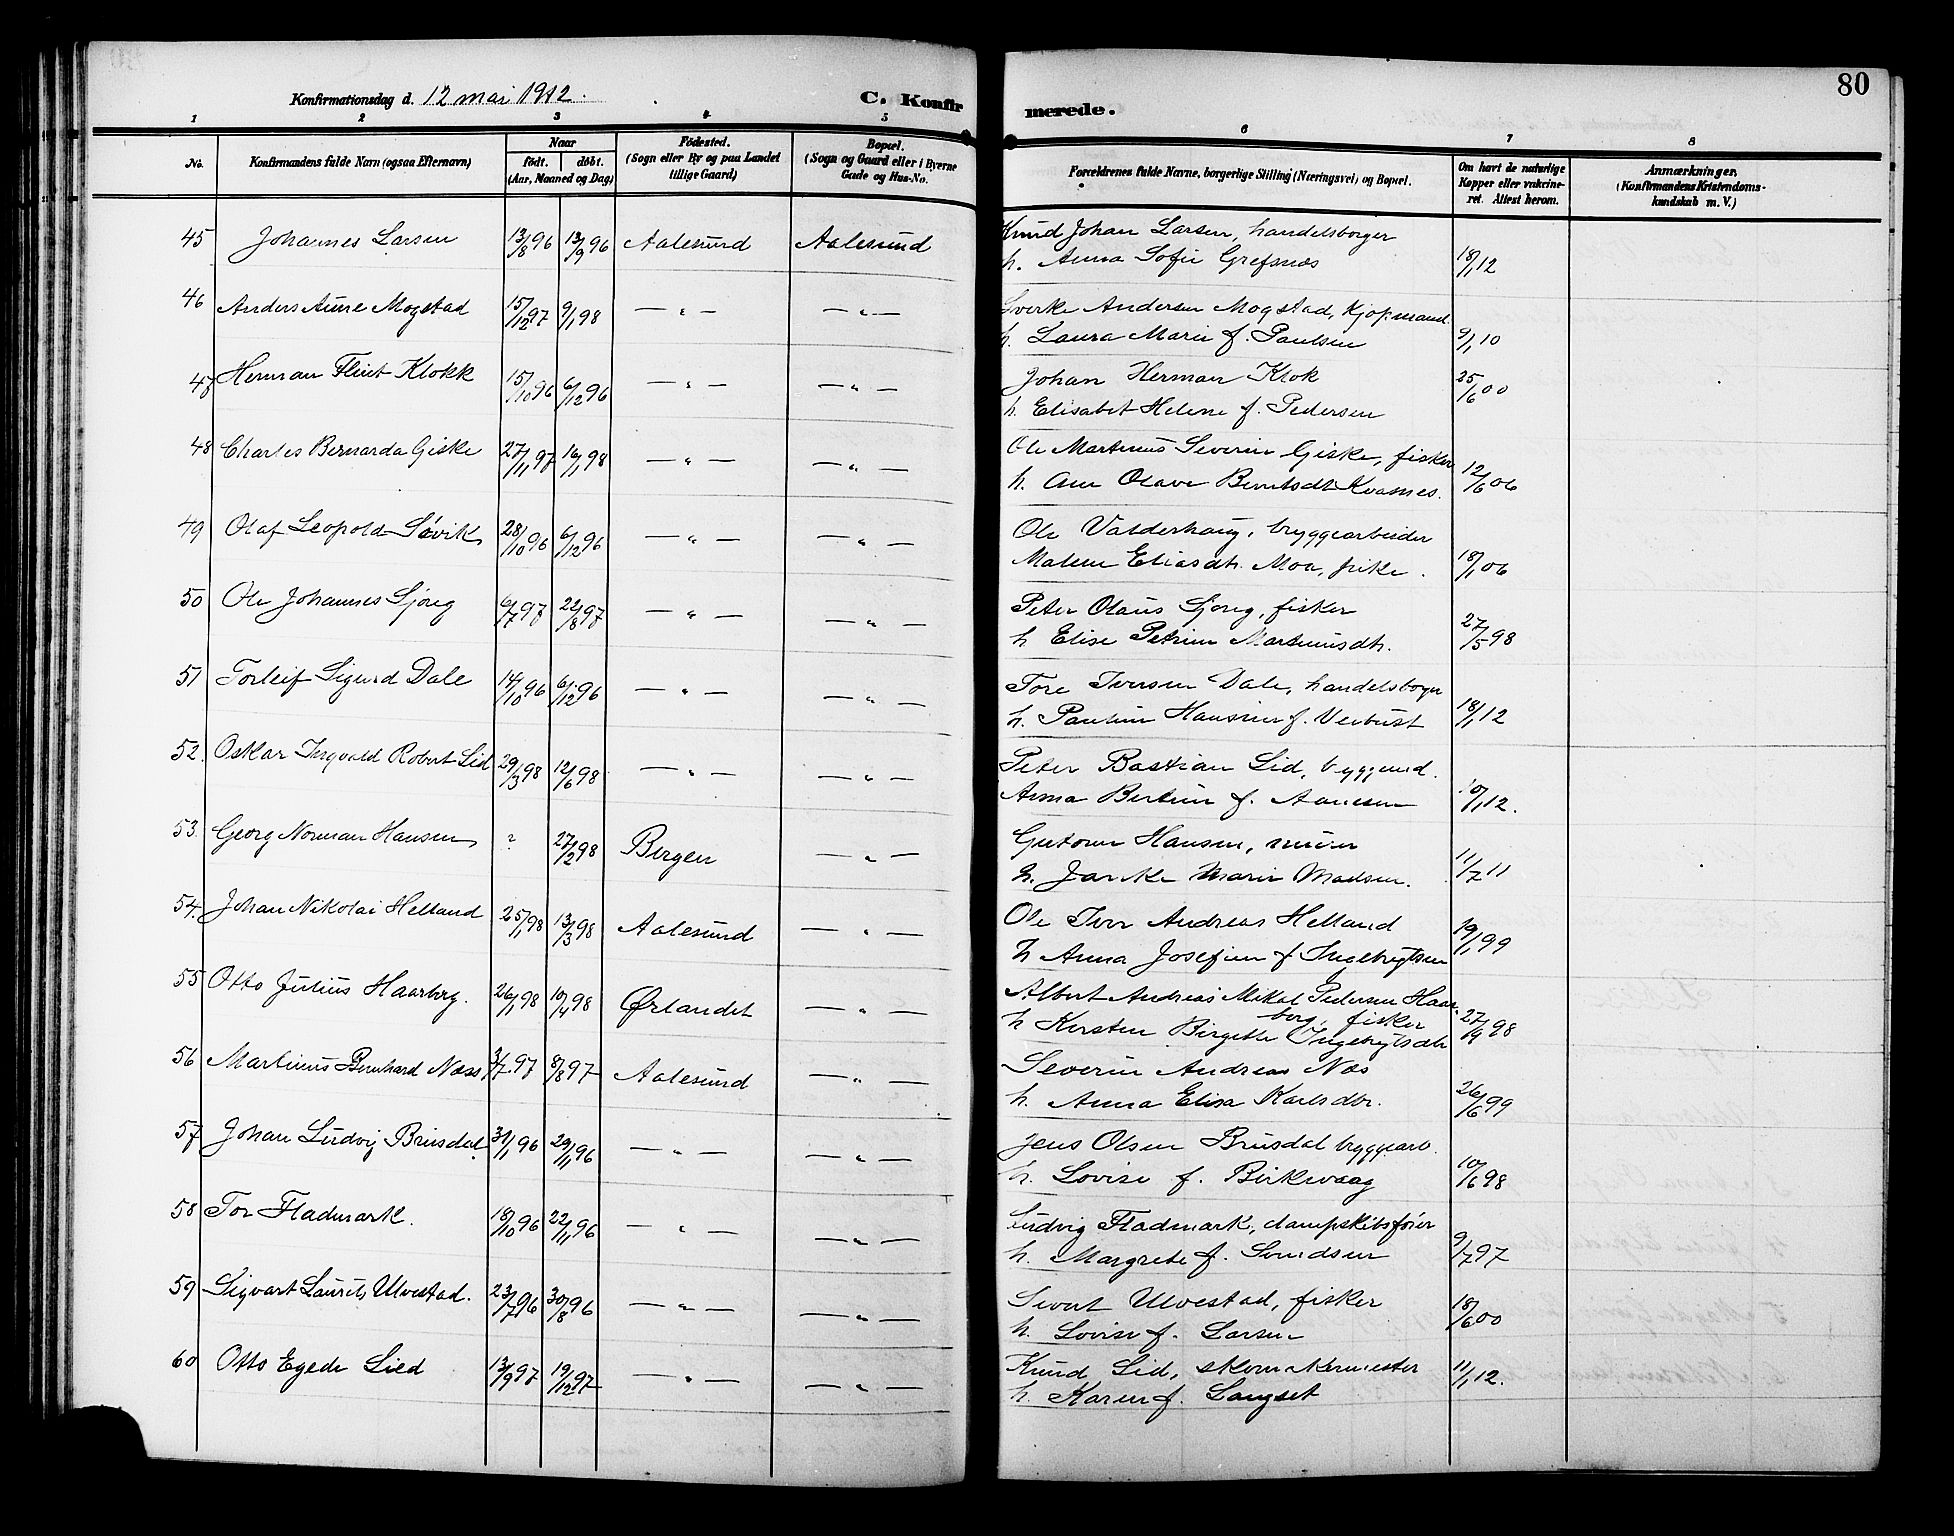 80
Konfirmationsdag d. 12 mai 1912. C. Konfirmerede.
1 2 3 4 5 6 7 8
No. Konfirmandens fulde Navn (ogsaa Efternavn) Naar født. døbt. (Aar, Maaned og Dag) Fødested. (Sogn eller By og paa Landet tillige Gaard) Bopæl. (Sogn og Gaard eller i Byerne Gade og Hus-No. Forældrenes fulde Navne, borgerlige Stilling (Næringsvei) og Bopæl. Om havt de naturlige Kopper eller vakcineret. Attest herom. Anmærkninger. (Konfirmandens Kristendomskundskab m. V.)
45 Johannes Larsen 13/8 96 13/9 96 Aalesund Aalesund Knud Johan Larsen, handelsborger
h. Anna Sofie Grefsnæs 18/1 12
46 Anders Aure Mogstad 15/12 97 9/1 98 — " — — " — Sverke Andersen Mogstad, Kjøpmand
h. Laura Marie f. Paulsen 9/1 10
47 Herman Flint Klokk 15/10 96 6/12 96 — " — — " — Johan Herman Klok
h. Elisabet Helene f. Pedersen 25/6 00
48 Charles Bernarda Giske 27/11 97 16/1 98 — " — — " — Ole Martinus Severin Giske, fisker
h. Ane Olave Berntsdtr Kvasnes. 12/6 06
49 Olaf Leopold Søvik 28/10 96 6/12 96 — " — — " — Ole Valderhaug, bryggearbeider
Malene Eliasdtr. Moa, pike. 18/1 06
50 Ole Johannes Sjong 6/7 97 22/8 97 — " — — " — Peter Olaus Sjong, fisker
h Elise Petrine Martinusdtr. 27/5 98
51 Torleif Sigurd Dale 14/10 96 6/12 96 — " — — " — Tore Iversen Dale, handelsborger
h. Pauline Hansine f. Veibust 18/1 12
52. Oskar Ingvald Robert Lid 29/3 98 12/6 98 — " — — " — Peter Bastian Lid, byggmd.
Anna Bertine f. Aanesen 10/1 12.
53. Georg Norman Hansen ? 27/2 98 Bergen — " — Gutorm Hansen, murer
h. Janike Marie Madsen. 11/7 11
54. Johan Nikolai Helland 25/1 98 13/3 98 Aalesund — " — Ole Iver Andreas Helland
h Anna Josefine f Ingebrigtsen 19/1 99
55 Otto Julius Haarberg. 26/1 98 10/4 98 Ørlandet — " — Albert Andreas Mikal Pedersen Haar
berg, fisker
h Kersten Birgitte Ingebrigtsdtr 27/9 98
56 Martinus Bernhard Næss 3/7 97 8/8 97 Aalesund — " — Severin Andreas Næs
h. Anna Elisa Karlsdtr. 26/6 99
57 Johan Ludvig Brusdal 31/1 96 29/11 96 — " — — " — Jens Olsen Brusdal bryggearb.
h. Lovise f. Birkevaag 10/6 98
58 Tor Fladmark. 18/10 96 22/11 96 — " — — " — Ludvig Fladmark, dampskibsfører
h. Margrete f. Svendsen 9/7 97
59 Sigvart Laurits Ulvestad. 23/7 96 30/8 96 — " — — " — Sivert Ulvestad, fisker
h. Lovise f. Larsen 18/6 00
60 Otto Egede Lied 13/9 97 19/12 97 — " — — " — Knud Lid, skomakermester
h. Karen f. Langset 11/1 12.